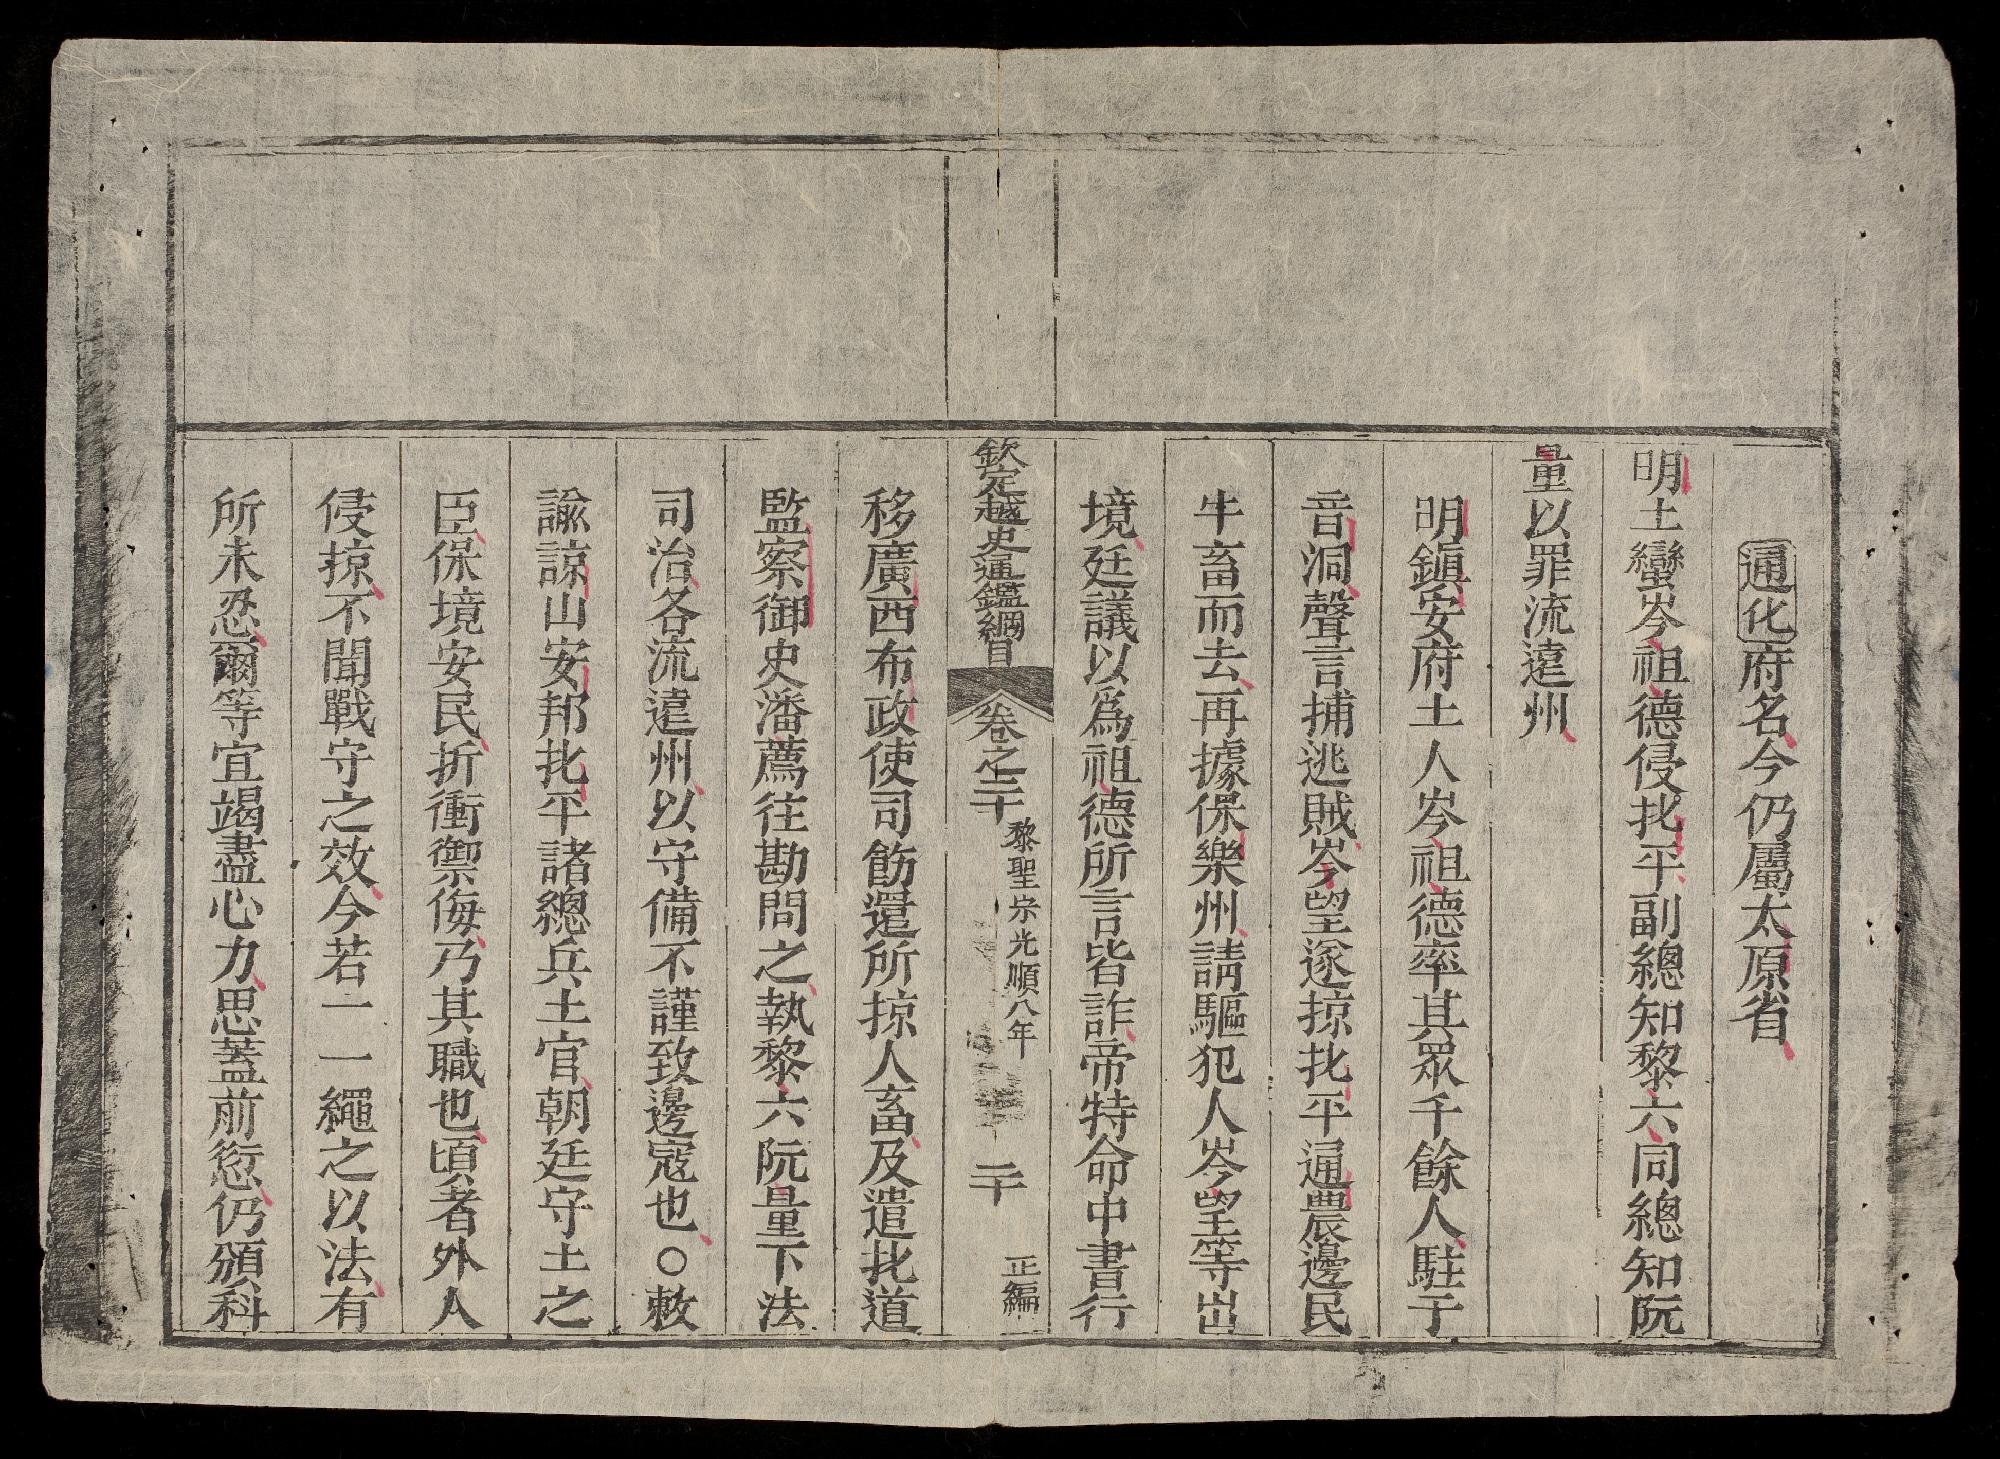 通化府名今仍屬太原省
明土蠻岑祖德侵北平副總知黎六同總知阮
量以罪流遠州
明鎮安府土人岑祖德率其眾千餘人駐于
音洞聲言捕逃賊岑望遂掠北平通農邊民
牛畜而去再據保樂州請驅犯人岑望等出
境廷議以爲祖德所言皆詐帝特命中書行
欽定越史通鑑綱目
卷之二十
黎聖宗光順八年
二十
正編
移廣西布政使司飭還所掠人畜及遣北道
監察御史潘薦往勘問之執黎六阮量下法
司治各流遠州以守備不謹致邊寇也○敕
諭諒山安邦北平諸總兵土官朝廷守土之
臣保境安民折衝禦侮乃其職也頃者外人
侵掠不聞戰守之效今若一一繩之以法有
所未忍爾等宜竭盡心力思蓋前愆仍頒科